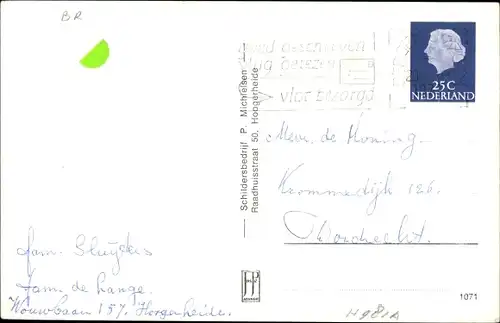 BR
goed geschreven
vlug gelezen
vlot bezorgd
25C
NEDERLAND
Schildersbedrijf P. Michielsen
Raadhuisstraat 50, Hoogerheide
Mevr. de Koning.
126.
Dordrecht.
Fam. Sluijters
Fam. de Lange.
Wouwbaan 157. Hogerheide.
JP
1071